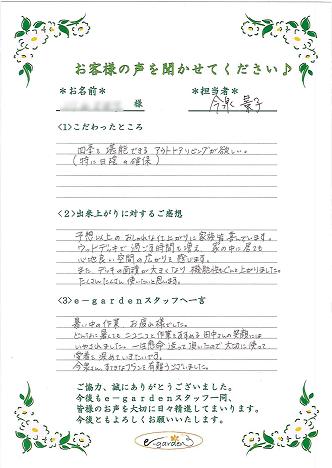 お客様の声を聞かせてください♪
＊お名前＊
＊担当者＊
様
今泉 景子
<1>こだわったところ
四季を堪能できるアウトドアリビングが欲しい。
(特に日陰の確保)
<2>出来上がりに対するご感想
予想以上のおしゃれな仕上がりに家族皆喜んでいます。
ウッドデッキで過ごす時間も増え 家の中に居ても
心地良い空間の広がりを感じます。
また デッキの面積が大きくなり 機能性もぐんと上がりました。
たくさんたくさん使いたいと思います。
<3>e－gardenスタッフへ一言
暑い中の作業 お疲れ様でした。
どんなに暑くても ニコニコと作業をすすめる田中さんの笑顔には
いやされました。一生懸命造って頂いたので大切に使って
愛着を深めていきたいです。
今泉さん、すてきなプランを有難うございました。
ご協力、誠にありがとうございました。
今後もe－gardenスタッフ一同、
皆様のお声を大切に日々精進してまいります。
今後ともよろしくお願いいたします。
e-garden